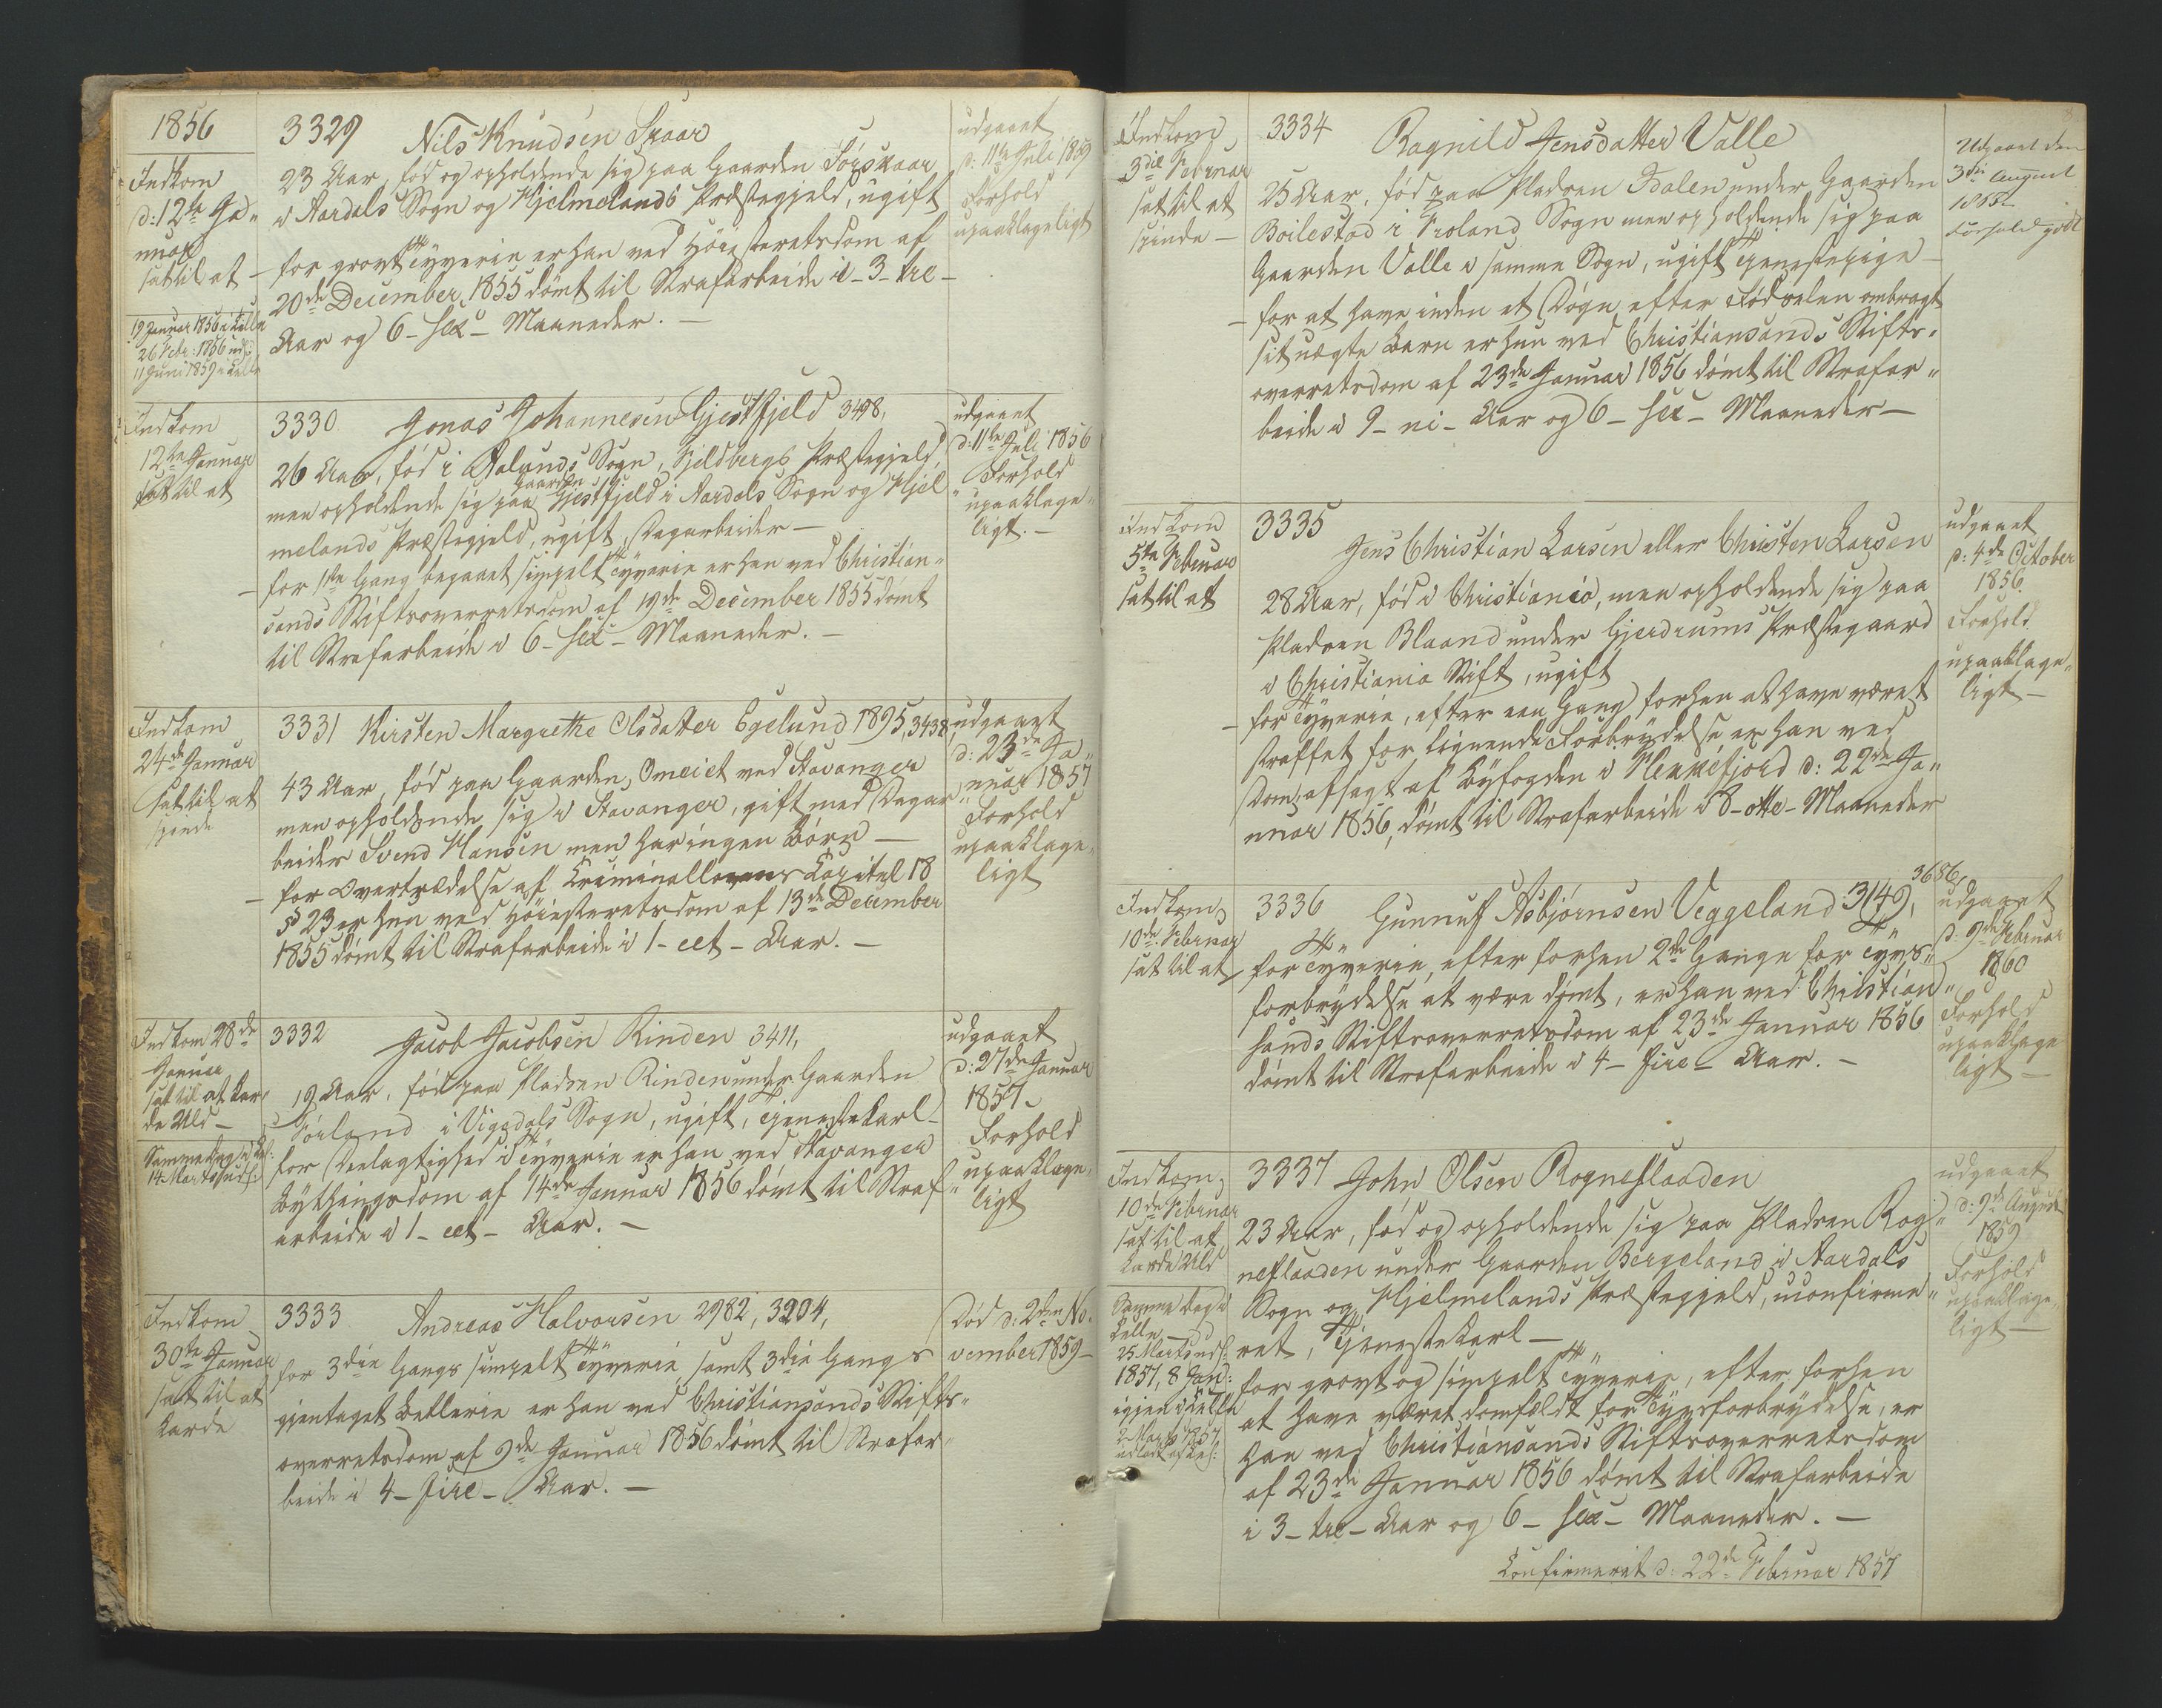 1856
Indkom
d: 12te Ja„
nuar
sat til at
19 Januar 1856 i Celle
26 Febr: 1856 ud
11 Juni 1859 i Celle
3329 Nils Knudsen Skaar
23 Aar, fød og opholdende sig paa Gaarden Sørskaar
i Aardals Sogn og Hjelmelands Præstegjeld, ugift
– for grovt Tyverie er han ved Høiesteretsdom af
20de December 1855 dømt til Strafarbeide i – 3 – tre –
Aar og 6 – sex – Maaneder. –
udgaaet
d: 11te Juli 1859
Forhold
upaaklageligt
Indkom
12te Januar
sat til at
3330 Jonas Johannesen Gjestfjeld 3498,
26 Aar, fød i Sogn, Fjeldbergs Præstegjeld,
men opholdende sig paa Gaarden Gjestfjeld i Aardals Sogn og Hjel
melands Præstegjeld, ugift, Dagarbeider –
– for 1ste Gang begaaet simpelt Tyverie er han ved Christian„
sands Stiftsoverretsdom af 19de December 1855 dømt
til Strafarbeide i 6 – sex – Maaneder. –
udgaaet
d: 11te Juli 1856
Forhold
upaaklage„
ligt. –
Indkom
24de Januar
sat til at
spinde
3331 Kirsten Margrethe Olsdatter Egelund 1895, 3438,
43 Aar, fød paa Gaarden Omeiet ved Stavanger
men opholdende sig i Stavanger, gift med Dagar„
beider Svend Hansen men har ingen Børn –
– for Overtrædelse af Criminallovens Capitel 18
§ 23 er hun ved Høiesteretsdom af 13de December
1855 dømt til Strafarbeide i 1 – eet – Aar. –
udgaaet
d: 23de Ja„
nuar 1857
Forhold
upaaklage„
ligt
Indkom 28de
Januar
sat til at kar„
de Uld –
Samme Dag i Cel:
14 Marts ud:
3332 Jacob Jacobsen Rinden 3411,
19 Aar, fød paa Pladsen Rinden under Gaarden
Sørland i Vigedals Sogn, ugift, Tjenestekarl –
for Deelagtighed i Tyverie er han ved Stavanger
Bythingsdom af 14de Januar 1856 dømt til Straf„
arbeide i 1 – eet – Aar. –
udgaaet
d: 27de Januar
1857.
Forhold
upaaklage„
ligt
Indkom
30te Januar
sat til at
karde
3333 Andreas Halvorsen 2982, 3204,
for 3die Gangs simpelt Tyverie samt 3die Gangs
gjentaget Betlerie er han ved Christiansands Stifts„
overretsdom af 9de Januar 1856 dømt til Strafar„
beide i 4 – fire – Aar. –
Død d: 2den No„
vember 1859 –
Indkom
3die Februar
sat til at
spinde –
3334 Ragnild Jensdatter Valle
25 Aar, fød paa Pladsen Idalen under Gaarden
Boilestad i Froland Sogn men opholdende sig paa
Gaarden Valle i samme Sogn, ugift Tjenestepige –
– for at have inden et Døgn efter Fødselen ombragt
sit uægte Barn er hun ved Christiansands Stifts„
overretsdom af 23de Januar 1856 dømt til Strafar„
beide i 9 – ni – Aar og 6 – sex – Maaneder –
8
Udgaaet den
3die August
Forhold godt
Indkom
5te Februar
sat til at
3335
Jens Christian Larsen eller Christen Larsen
28 Aar, fød i Christiania, men opholdende sig paa
Pladsen Blaand under Gjerdrums Præstegaard
i Christiania Stift, ugift
– for Tyverie, efter een Gang forhen at have været
straffet for lignende Forbrydelse er han ved
Dom, afsagt af Byfogden i Flekkefjord d: 22de Ja„
nuar 1856, dømt til Strafarbeide i 8 – otte – Maaneder
udgaaet
d: 4de October
1856.
Forhold
upaaklage„
ligt –
Indkom
10de Februar
sat til at
3336 Gunnuf Asbjørnsen Veggeland 3149, 3686,
for Tyverie, efter forhen 2de Gange for Tyvs„
forbrydelse at være dømt, er han ved Christian„
sands Stiftsoverretsdom af 23de Januar 1856
dømt til Strafarbeide i 4 – fire – Aar. –
udgaaet
d: 9de Februar
1860
Forhold
upaaklage
ligt –
Indkom
10de Februar
sat til at
karde Uld
Samme Dag i
Celle –
25 Marts ud:
1857, 8 Jan:
igjen i Celle
2 Marts 1857
3337 John Olsen Rogneflaaden
23 Aar, fød og opholdende sig paa Pladsen Rog„
neflaaden under Gaarden Bergeland i Aardals
Sogn og Hjelmelands Præstegjeld, uconfirme„
ret, Tjenestekarl –
for grovt og simpelt Tyverie, efter forhen
at have været domfældt for Tyvsforbrydelse, er
han ved Christiansands Stiftsoverretsdom
af 23de Januar 1856 dømt til Strafarbeide
i 3 – tre – Aar og 6 – sex – Maaneder. –
Confirmeret d: 22de Februar 1857
udgaaet
d: 9de August
1859
Forhold
upaaklage„
ligt –